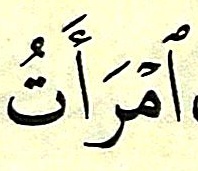 ٱمۡرَأَتُ